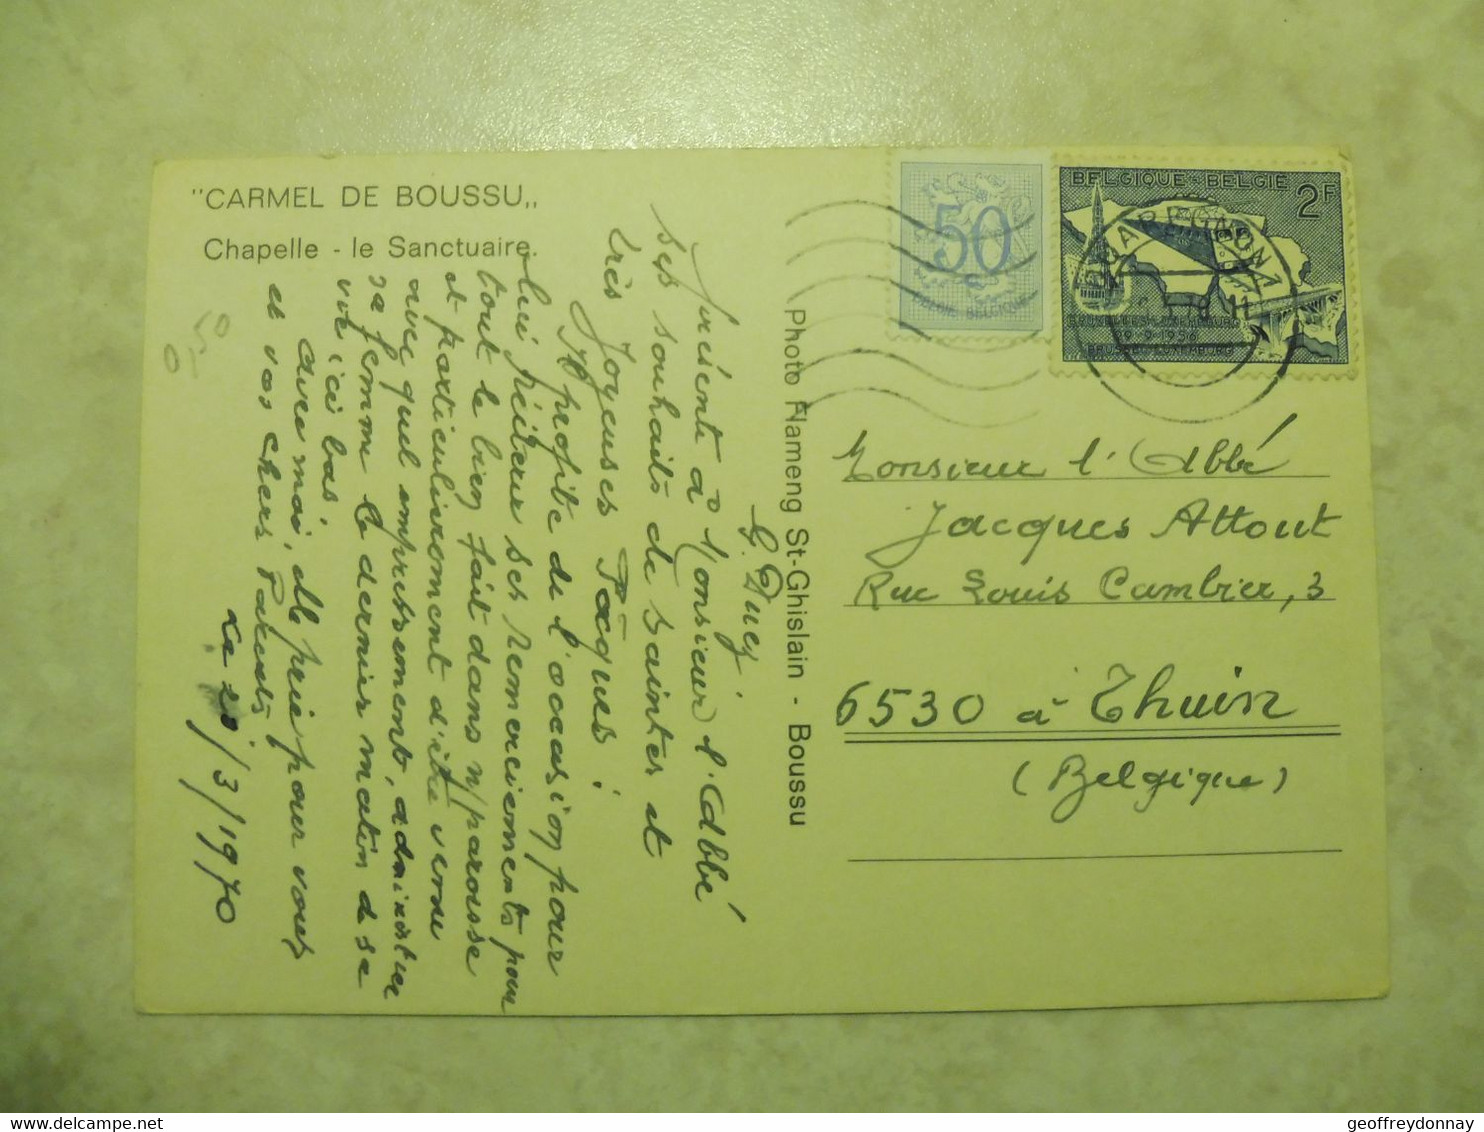 "CARMEL DE BOUSSU,,
Chapelle - le Sanctuaire.
G. Duez
présente à Monsieur l'Abbé
ses souhaits de Saintes et
très Joyeuses Pâques!
profite de l'occasion pour
lui réitérer ses Remerciements pour
tout le bien fait dans n/paroisse
et particulièrement d'être venu
avec quel empressement, administrer
sa femme le dernier matin de sa
vie ici bas.
Avec moi, elle prie pour vous
et vos chers Parents
Le 23/3/1970
50
0
Photo Flameng St-Ghislain - Boussu
50
BELGIE BELGIQUE
BELGIQUE - BELGIE 2F
BRUXELLES-LUXEMBOURG
29-9-1956
BRUSSEL-LUXEMBURG
QUAREGNON 1
Monsieur l'Abbé
Jacques Attout
Rue Louis Cambier, 3
6530 à Thuin
(Belgique)
geoffreydonnay